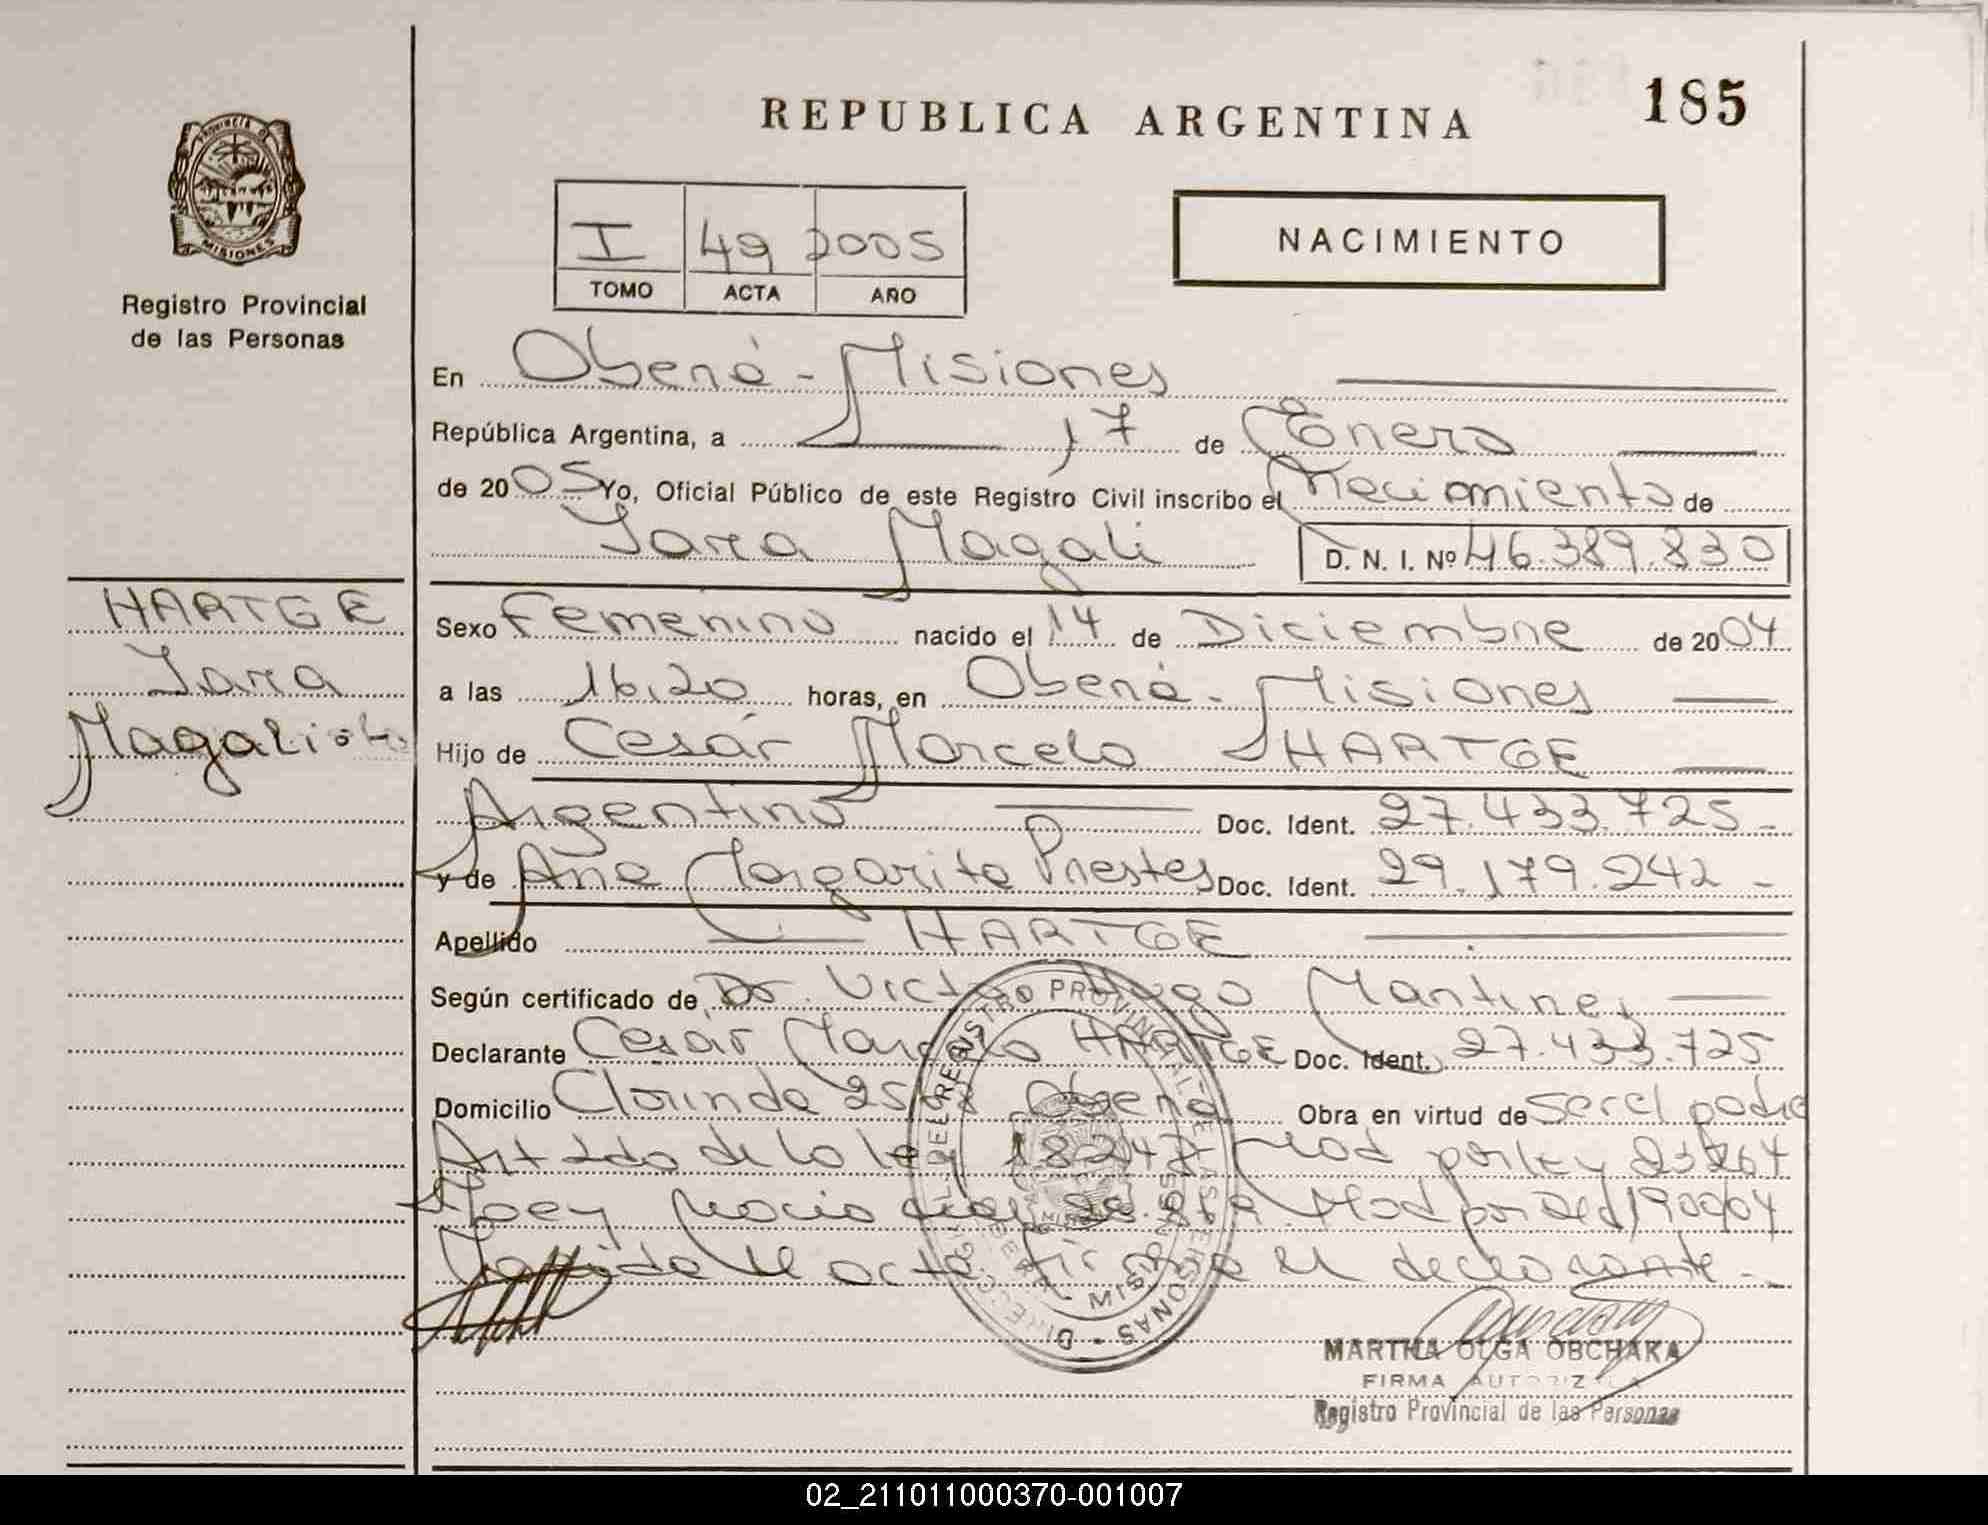 185
REPUBLICA ARGENTINA
PROVINCIA D
MISIONES
Registro Provincial
de las Personas
I 49 2005
TOMO ACTA AÑO
NACIMIENTO
En Oberá - Misiones
República Argentina, a 17 de Enero
de 2005 Yo, Oficial Público de este Registro Civil inscribo el Nacimiento de
Iara Magali D. N. I. Nº 46.389.830
HARTGE
Iara
Magali
Sexo Femenino nacido el 14 de Diciembre de 2004
a las 16,20 horas, en Oberá - Misiones
Hijo de Cesár Marcelo HARTGE
Argentino Doc. Ident. 27.433.725-
y de Ana Margarita Prestes Doc. Ident. 29.179.242-
Apellido HARTGE
Según certificado de Dr. Victor Hugo Martinez
Declarante Cesar Marcelo HARTGE Doc. Ident. 27.433.725
Domicilio Clorinda Oberá Obra en virtud de ser el padre
Art 2do de la ley 18.248 Mod por ley 23264
Mod por Decl
Leida el acta firma el declarante -
MARTHA OLGA OBCHAKA
FIRMA AUTORIZADA
Registro Provincial de las Personas
02_211011000370-001007